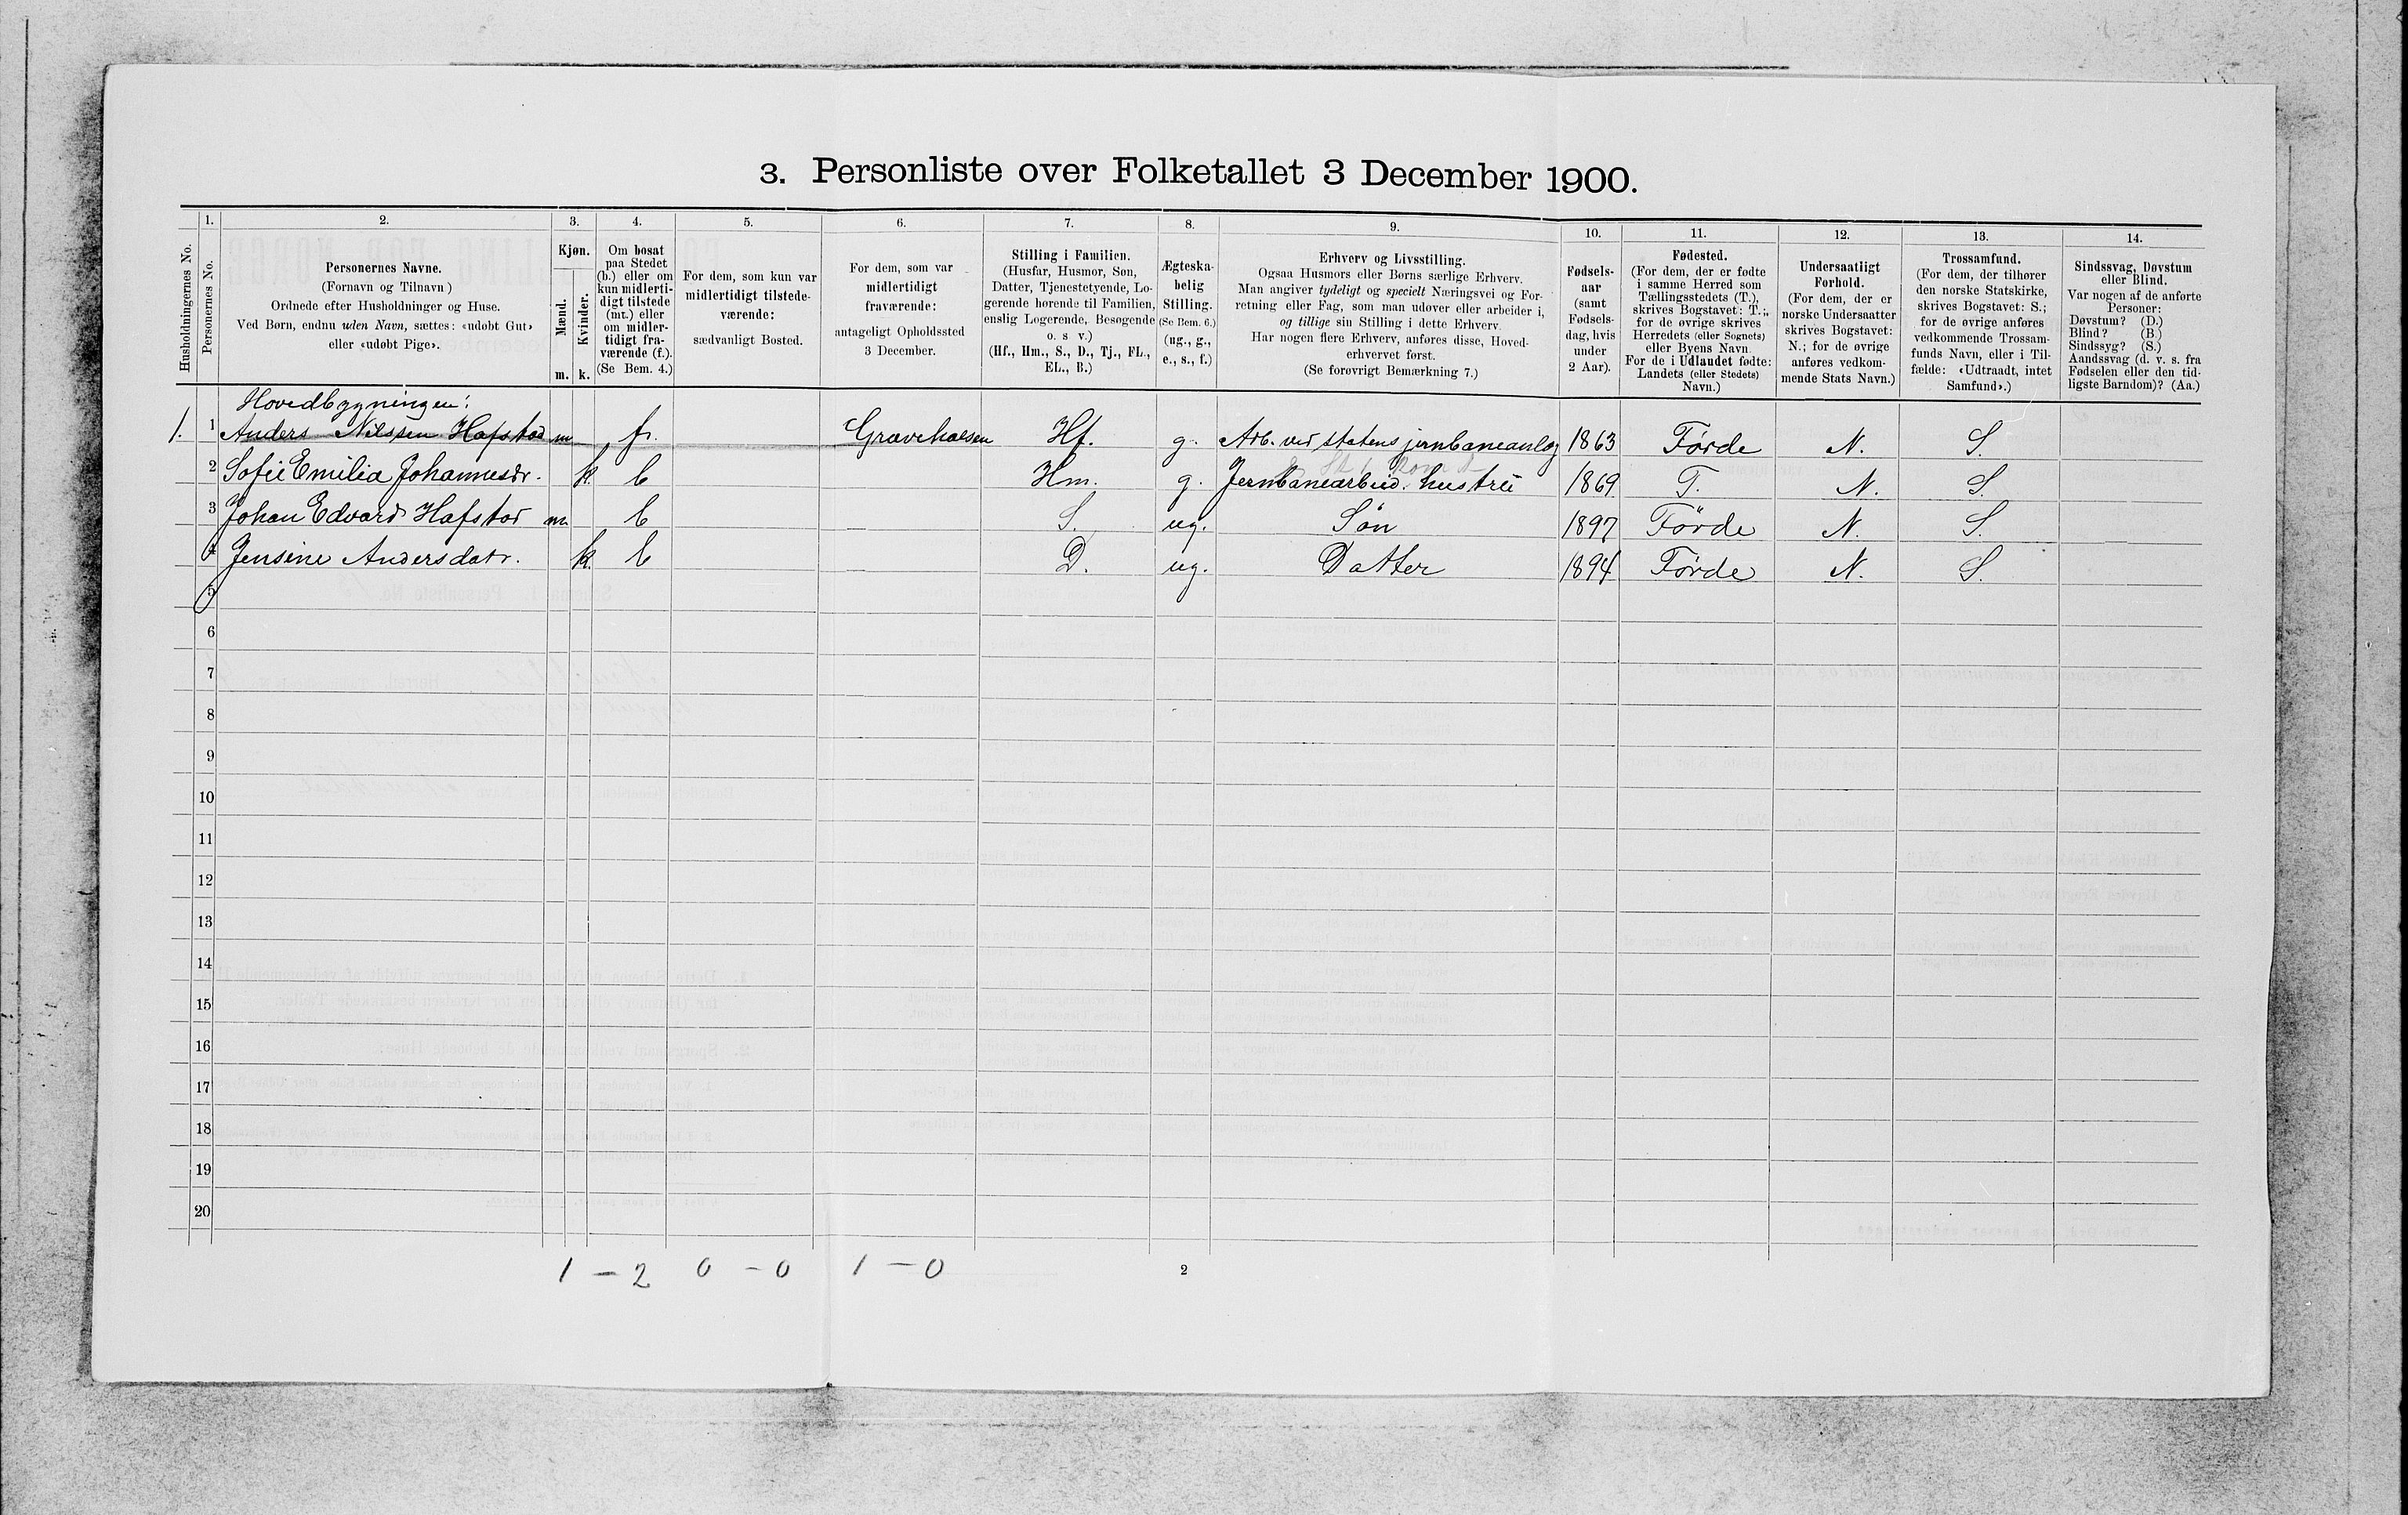 3. Personliste over Folketallet 3 December 1900.
Husholdningernes No.
1.
Personernes No.
2.
Personernes Navne.
(Fornavn og Tilnavn)
Ordnede efter Husholdninger og Huse.
Ved Børn, endnu uden Navn, sættes: «udøbt Gut»
eller «udøbt Pige».
3.
Kjøn.
Mænd.
Kvinder.
m. k.
4.
Om bosat
paa Stedet
(b.) eller om
kun midlerti-
digt tilstede
(mt.) eller
om midler-
tidigt fra-
værende (f.).
(Se Bem. 4.)
5.
For dem, som kun var
midlertidigt tilstede-
værende:
sædvanligt Bosted.
6.
For dem, som var
midlertidigt
fraværende:
antageligt Opholdssted
3 December.
7.
Stilling i Familien.
(Husfar, Husmor, Søn,
Datter, Tjenestetyende, Lo-
gerende hørende til Familien,
enslig Logerende, Besøgende
o. s v.)
(Hf., Hm., S., D., Tj., FL.,
EL., B.)
8.
Ægteska-
belig
Stilling.
(Se Bem. 6.)
(ug., g.,
e., s., f.)
9.
Erhverv og Livsstilling.
Ogsaa Husmors eller Børns særlige Erhverv.
Man angiver tydeligt og specielt Næringsvei og For-
retning eller Fag, som man udøver eller arbeider i,
og tillige sin Stilling i dette Erhverv.
Har nogen flere Erhverv, anføres disse, Hoved-
erhvervet først.
(Se forøvrigt Bemærkning 7.)
10.
Fødsels-
aar
(samt
Fødsels-
dag, hvis
under
2 Aar).
11.
Fødested.
(For dem, der er fødte
i samme Herred som
Tællingsstedets (T.),
skrives Bogstavet: T.;
for de øvrige skrives
Herredets (eller Sognets)
eller Byens Navn.
For de i Udlandet fødte:
Landets (eller Stedets)
Navn.)
12.
Undersaatligt
Forhold.
(For dem, der er
norske Undersaatter
skrives Bogstavet:
N.; for de øvrige
anføres vedkom-
mende Stats Navn.)
13.
Trossamfund.
(For dem, der tilhører
den norske Statskirke,
skrives Bogstavet: S.;
for de øvrige anføres
vedkommende Trossam-
funds Navn, eller i Til-
fælde: «Udtraadt, intet
Samfund».)
14.
Sindssvag, Døvstum
eller Blind.
Var nogen af de anførte
Personer:
Døvstum? (D.)
Blind? (B.)
Sindssyg? (S.)
Aandssvag (d. v. s. fra
Fødselen eller den tid-
ligste Barndom)? (Aa.)
Hovedbygningen:
1. 1 Anders Nilssen Hafstad m f. Gravehalsen Hf. g. Arb. ved statens jernbaneanlæg 1863 Førde N. S.
2 Sofie Emilia Johannesdr. k. b Hm. g. Jernbanearbeid. hustru 1869 T. N. S.
3 Johan Edvard Hafstad m b S. ug. Søn 1897 Førde N. S.
4 Jensine Andersdatr. k. b D. ug. Datter 1894 Førde N. S.
5
6
7
8
9
10
11
12
13
14
15
16
17
18
19
20
1 – 2 0 – 0 1 – 0
2